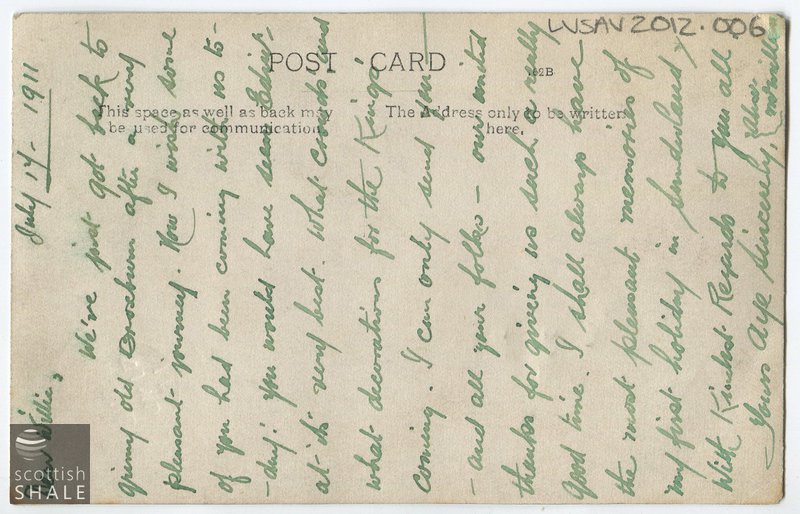 LVSAV2012.006
POST CARD
.62B
This space as well as back may
be used for communication.
The Address only to be written
here.
July 17 - 1911
Dear Willie,
We've just got back to
grimy old Broxburn after a very
pleasant journey. How I wish some
of you had been coming with us to-
-day! You would have seen Edin'r
at its very best. What crowds! and
what decorations for the King's
coming. I can only send then
- and all your folks - our united
thanks for giving us such a really
good time. I shall always have
the most pleasant memories of
my first holiday in Sunderland.
With Kindest Regards to you all
Yours aye sincerely,
scottish
SHALE